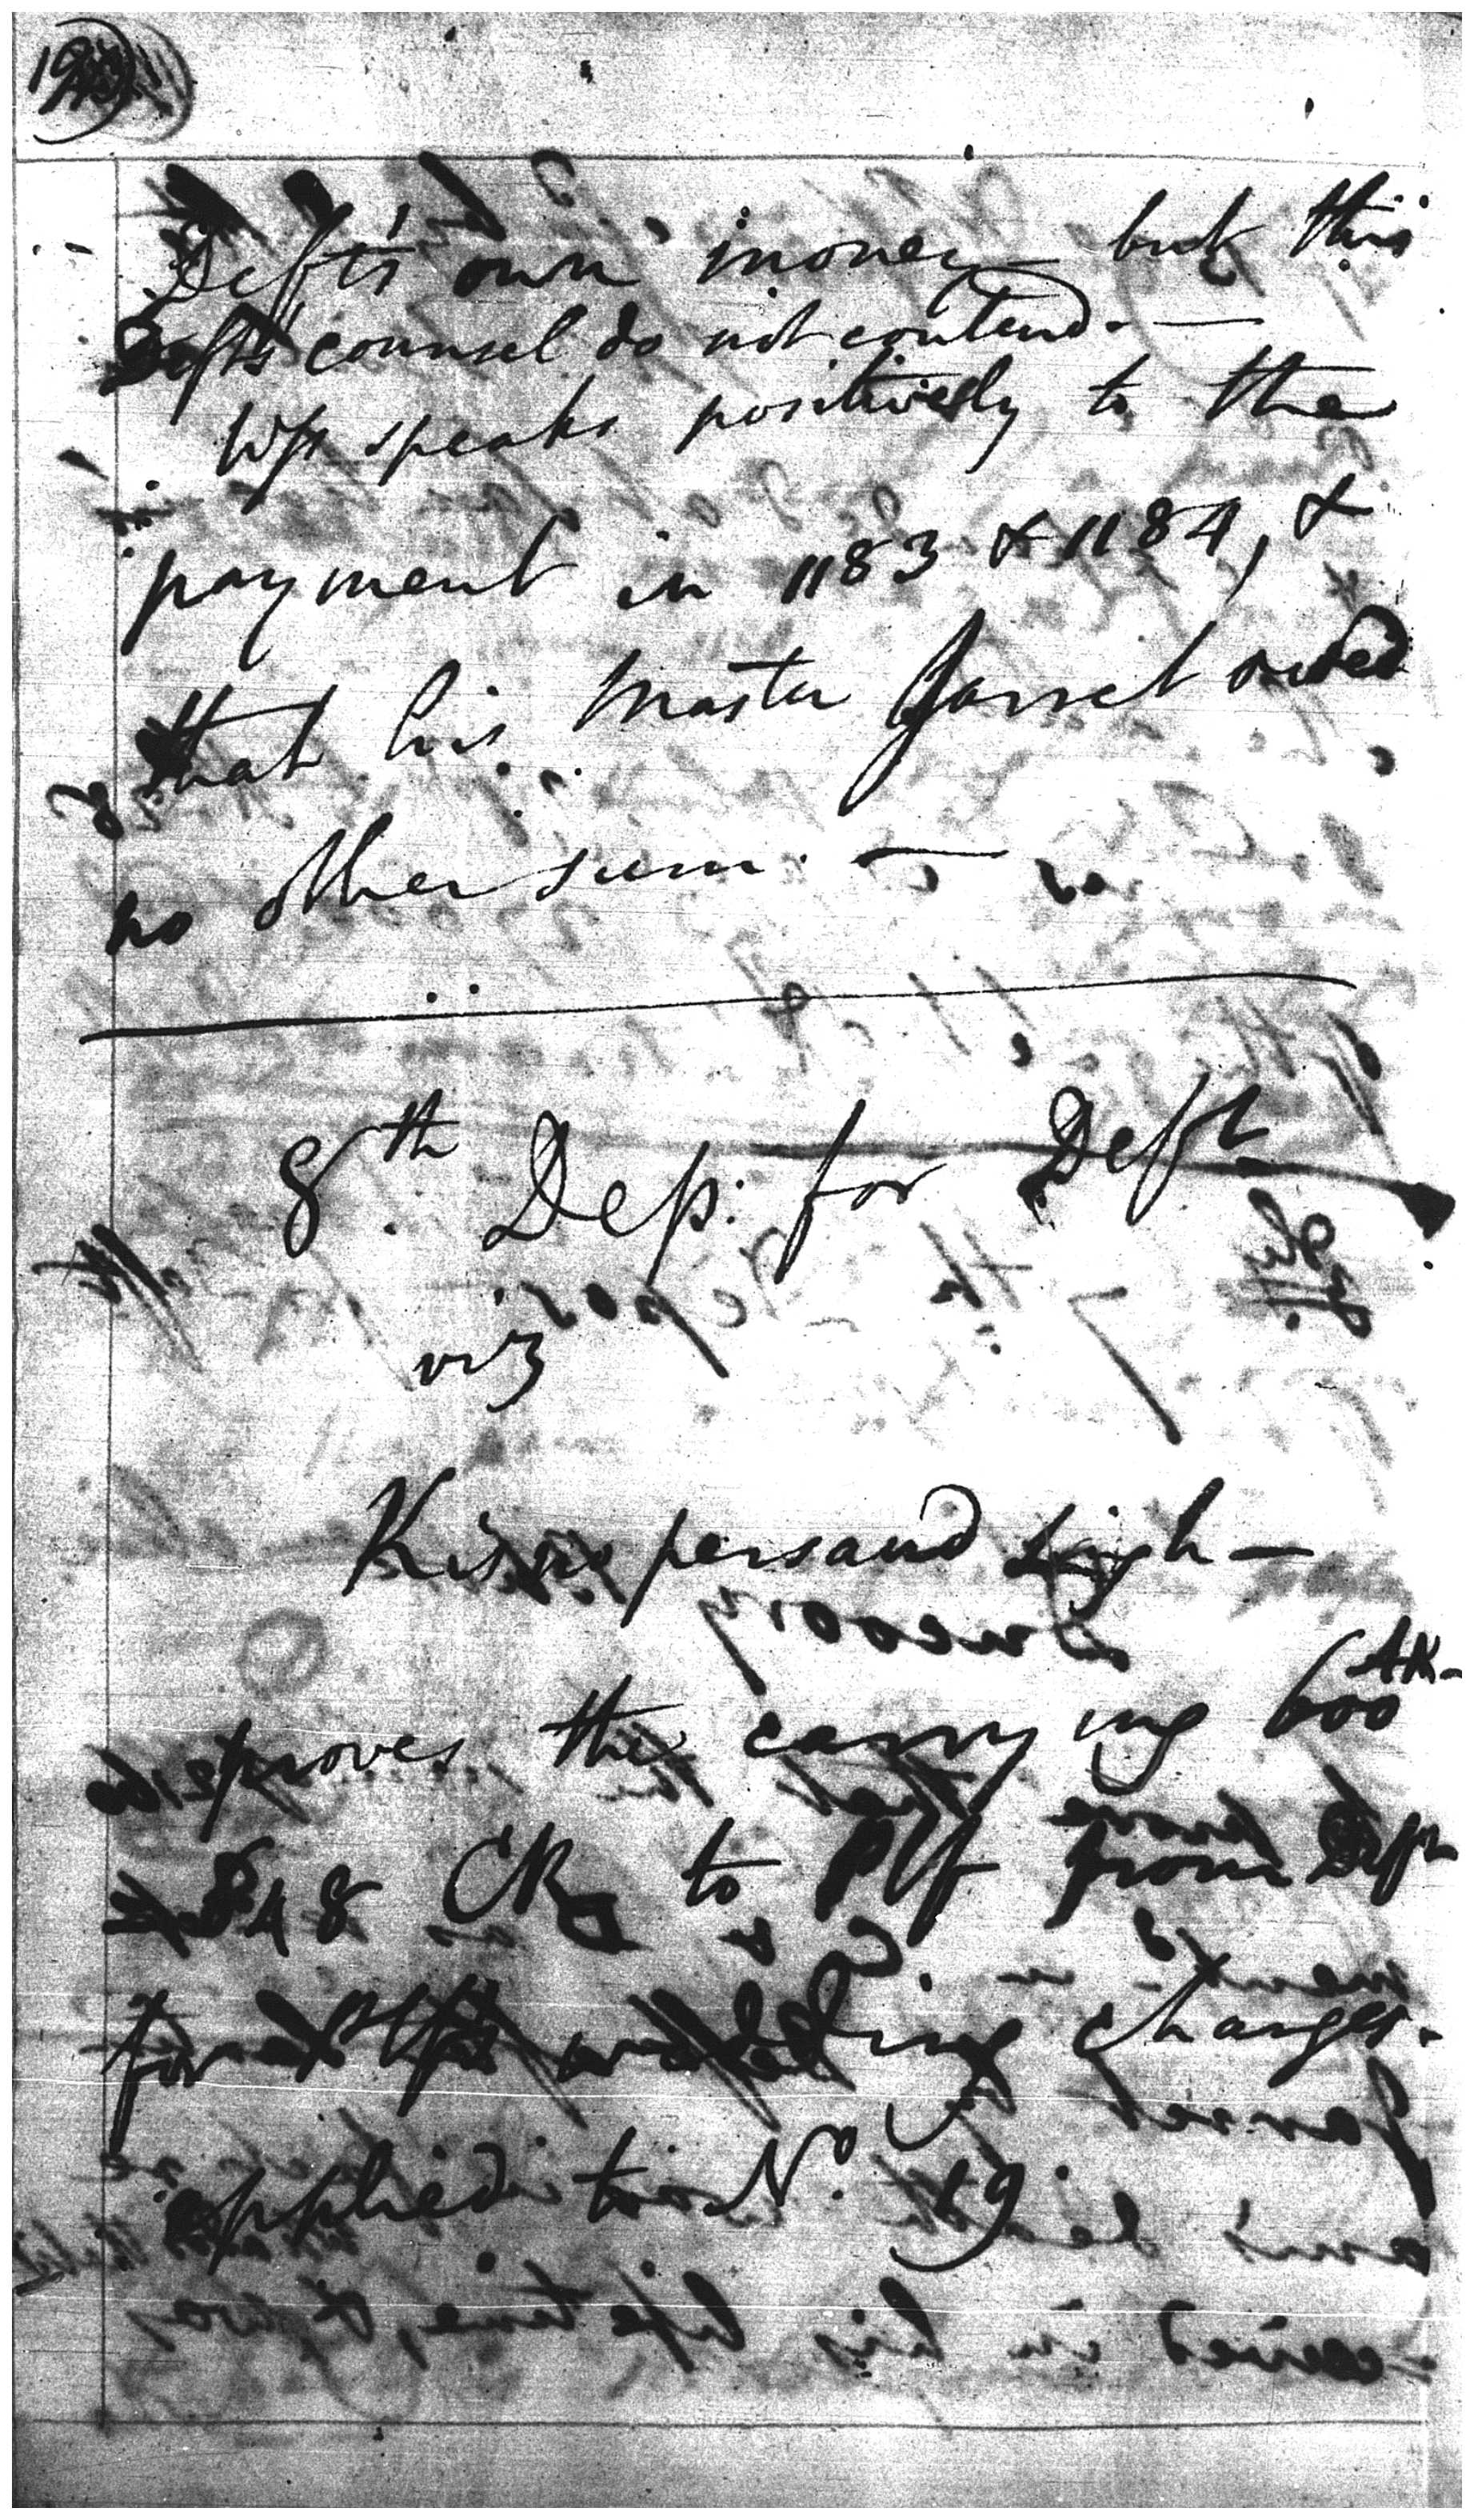 Deft's own money but this
Defts counsel do not contend. —
Wfs speaks positively to the
payment in 1183 & 1184, &
that his Master Jarret owed
no other sum. —
8th Dep. for Deft
viz
persaud Singh —
proves the carrying 600 AR-
& 848 CRs to Plf from Deft
for charges.
applied to No. 19